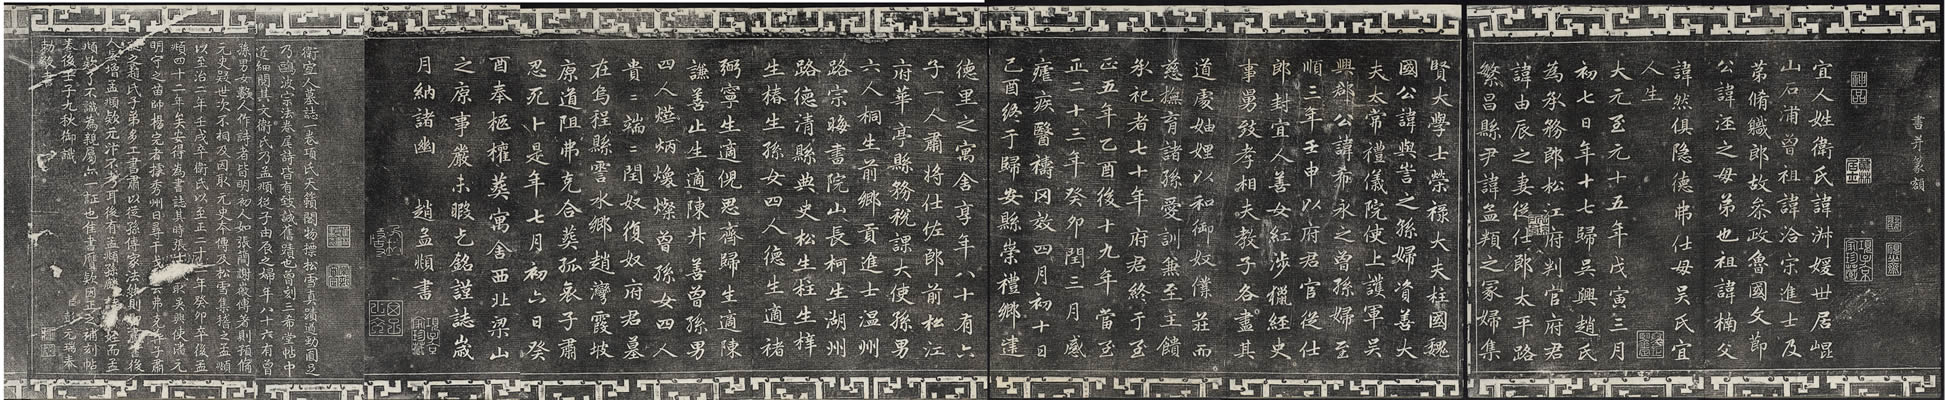 書并篆額
宜人姓衛氏諱淑媛世居崐
山石浦曾祖諱洽宗進士及
第脩軄郎故叅政魯國文節
公諱涇之母弟也祖諱楠父
諱然俱隐德弗仕母吴氏宜
人生
大元至元十五年戊寅三月
初七日年十七歸吴興趙氏
為承務郎松江府判官府君
諱由辰之妻從仕郎太平路
繁昌縣尹諱孟頪之冢婦集
賢大學士榮禄大夫柱國魏
國公諱與訔之孫婦資善大
夫太常禮儀院使上護軍吴
興郡公諱希永之曾孫婦至
順三年壬申以府君官從仕
郎封宜人善女紅涉獵經史
事舅姑孝相夫教子各盡其
道處妯娌以和御奴僕莊而
慈撫育諸孫愛訓兼至主饋
承祀者七十年府君終于至
正五年乙酉後十九年當至
正二十三年癸卯閏三月感
瘧疾醫禱罔效四月初十日
己酉終于歸安縣崇禮鄉逮
德里之寓舍享年八十有六
子一人肅將仕佐郎前松江
府華亭縣務稅課大使孫男
六人桐生前鄉貢進士温州
路宗晦書院山長柯生湖州
路德清縣典史松生桂生梓
生椿生孫女四人德生適褚
弼寧生適倪思齊歸生適陳
謙善止生適陳舛善曾孫男
四人燧炳煥燦曾孫女四人
貴二端二閏奴復奴府君墓
在烏程縣雪水鄉趙灣霞坡
原道阻弗克合葬孤哀子肅
忍死卜是年七月初六日癸
酉奉柩權葬寓舍西北梁山
之原事嚴未暇乞銘謹誌歲
月納諸幽
趙孟順書
衛宜人墓誌一卷項氏天籟閣物摽松雪真蹟過勁圓足
乃鷗波宗法卷尾詩皆有致誠舊蹟也曾刻三希堂帖中
近細閱其文衛氏乃孟頫從子由辰之婦年八十六有曾
孫男女數人作詩者皆明初人如張簡謝嚴傳著則預脩
元史疑世次不相及因取元史本傳及松雪集稽之孟頫
以至治二年壬戌卒衛氏以至正二十三年癸卯卒後孟
頫四十二年矣安得為書誌其時張士誠取吴興使潘元
明守之苗帥楊完者據秀州日尋干戈